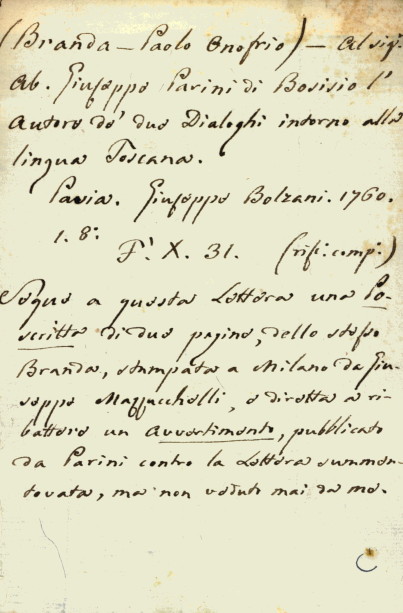 (Branda – Paolo Onofrio) – Al sig.
Ab. Giuseppe Parini di Bosisio l'
Autore de' due Dialoghi intorno alla
lingua Toscana.
Pavia. Giuseppe Bolzani. 1760.
1. 8.
F. X. 31. (rif. comp.)
Segue a questa Lettera una Po-
scritta di due pagine, dello stesso
Branda, stampata a Milano da Giu-
seppe Mazzucchelli, e diretta a ri-
battere un Avvertimento, pubblicato
da Parini contro la Lettera summen-
tovata, ma non veduti mai da me.